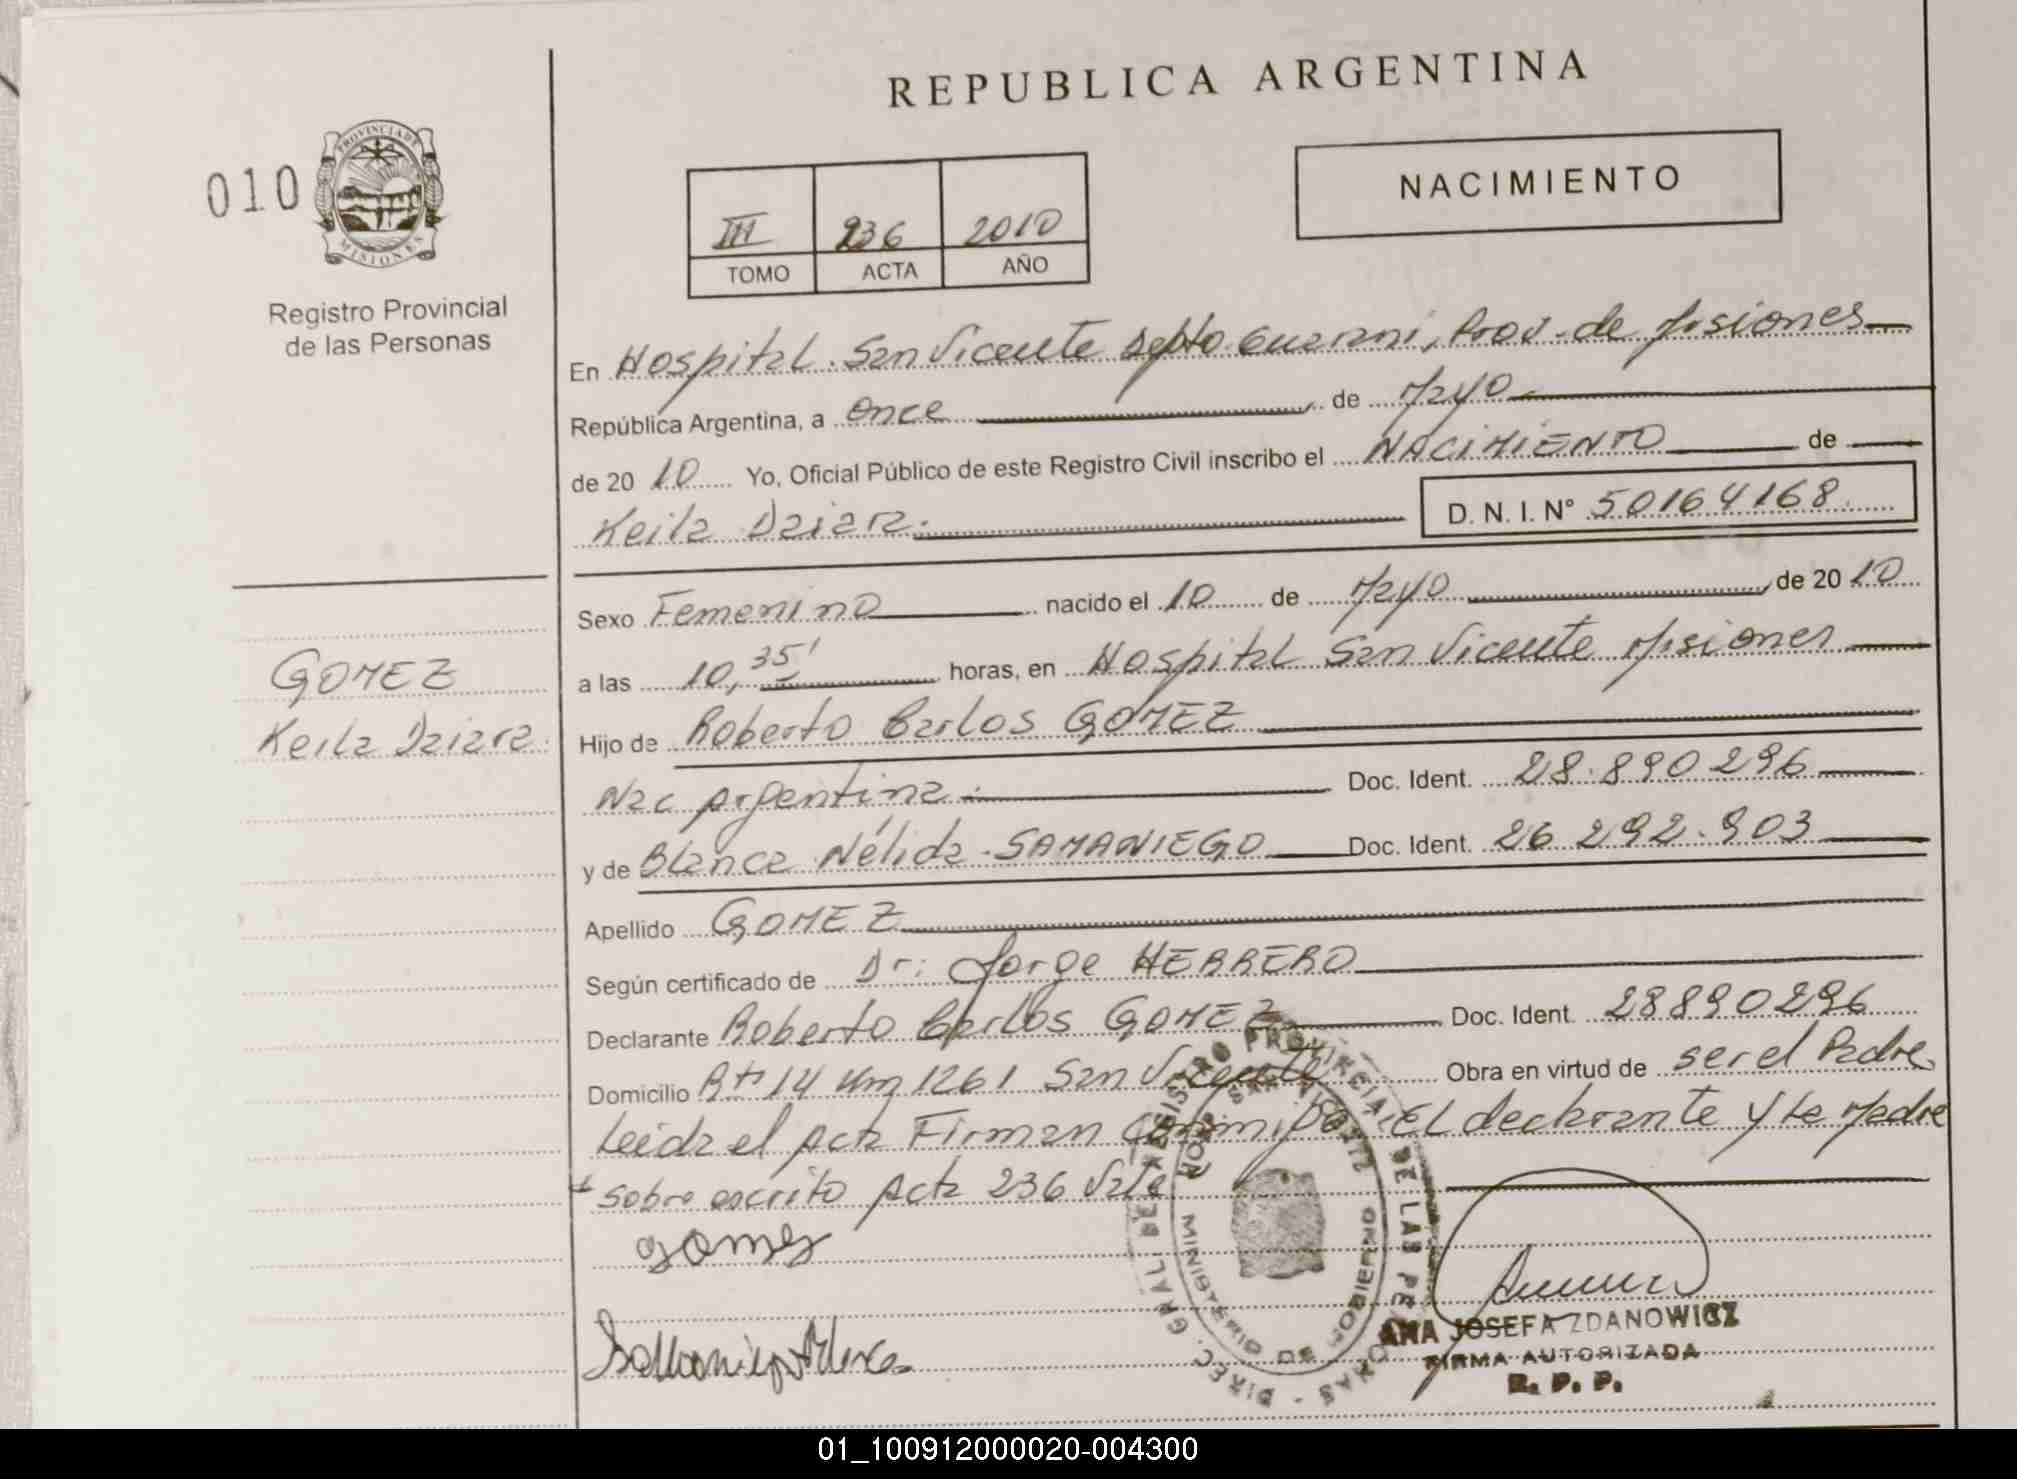 REPUBLICA ARGENTINA
010
PROVINCIA DE
MISIONES
Registro Provincial
de las Personas
III 236 2010
TOMO ACTA AÑO
NACIMIENTO
En Hospital San Vicente Dpto Guarani, Prov. de Misiones
República Argentina, a once de Mayo
de 2010 Yo, Oficial Público de este Registro Civil inscribo el NACIMIENTO de
Keila Daiara. D. N. I. N° 50164168
Sexo Femenino nacido el 10 de Mayo, de 2010
a las 10,35' horas, en Hospital San Vicente Misiones
GOMEZ
Keila Daiara.
Hijo de Roberto Carlos GOMEZ
Nac Argentina.- Doc. Ident. 28.890296
y de Blanca Nélida SAMANIEGO Doc. Ident. 26 292.903
Apellido GOMEZ
Según certificado de Dr: Jorge HERRERO
Declarante Roberto Carlos GOMEZ Doc. Ident. 28890296
Domicilio Rta 14 Km 1261 San Vicente Obra en virtud de ser el Padre
Leida el Acta Firman Conmigo: EL declarante y La Madre
sobre escrito Acta 236 Vale
gomez
DIREC. GRAL. DEL REGISTRO PROVINCIAL DE LAS PERSONAS -
HOSP. SAN VICENTE
MINISTERIO DE GOBIERNO
ANA JOSEFA ZDANOWICZ
FIRMA AUTORIZADA
R. P. P.
01_100912000020-004300